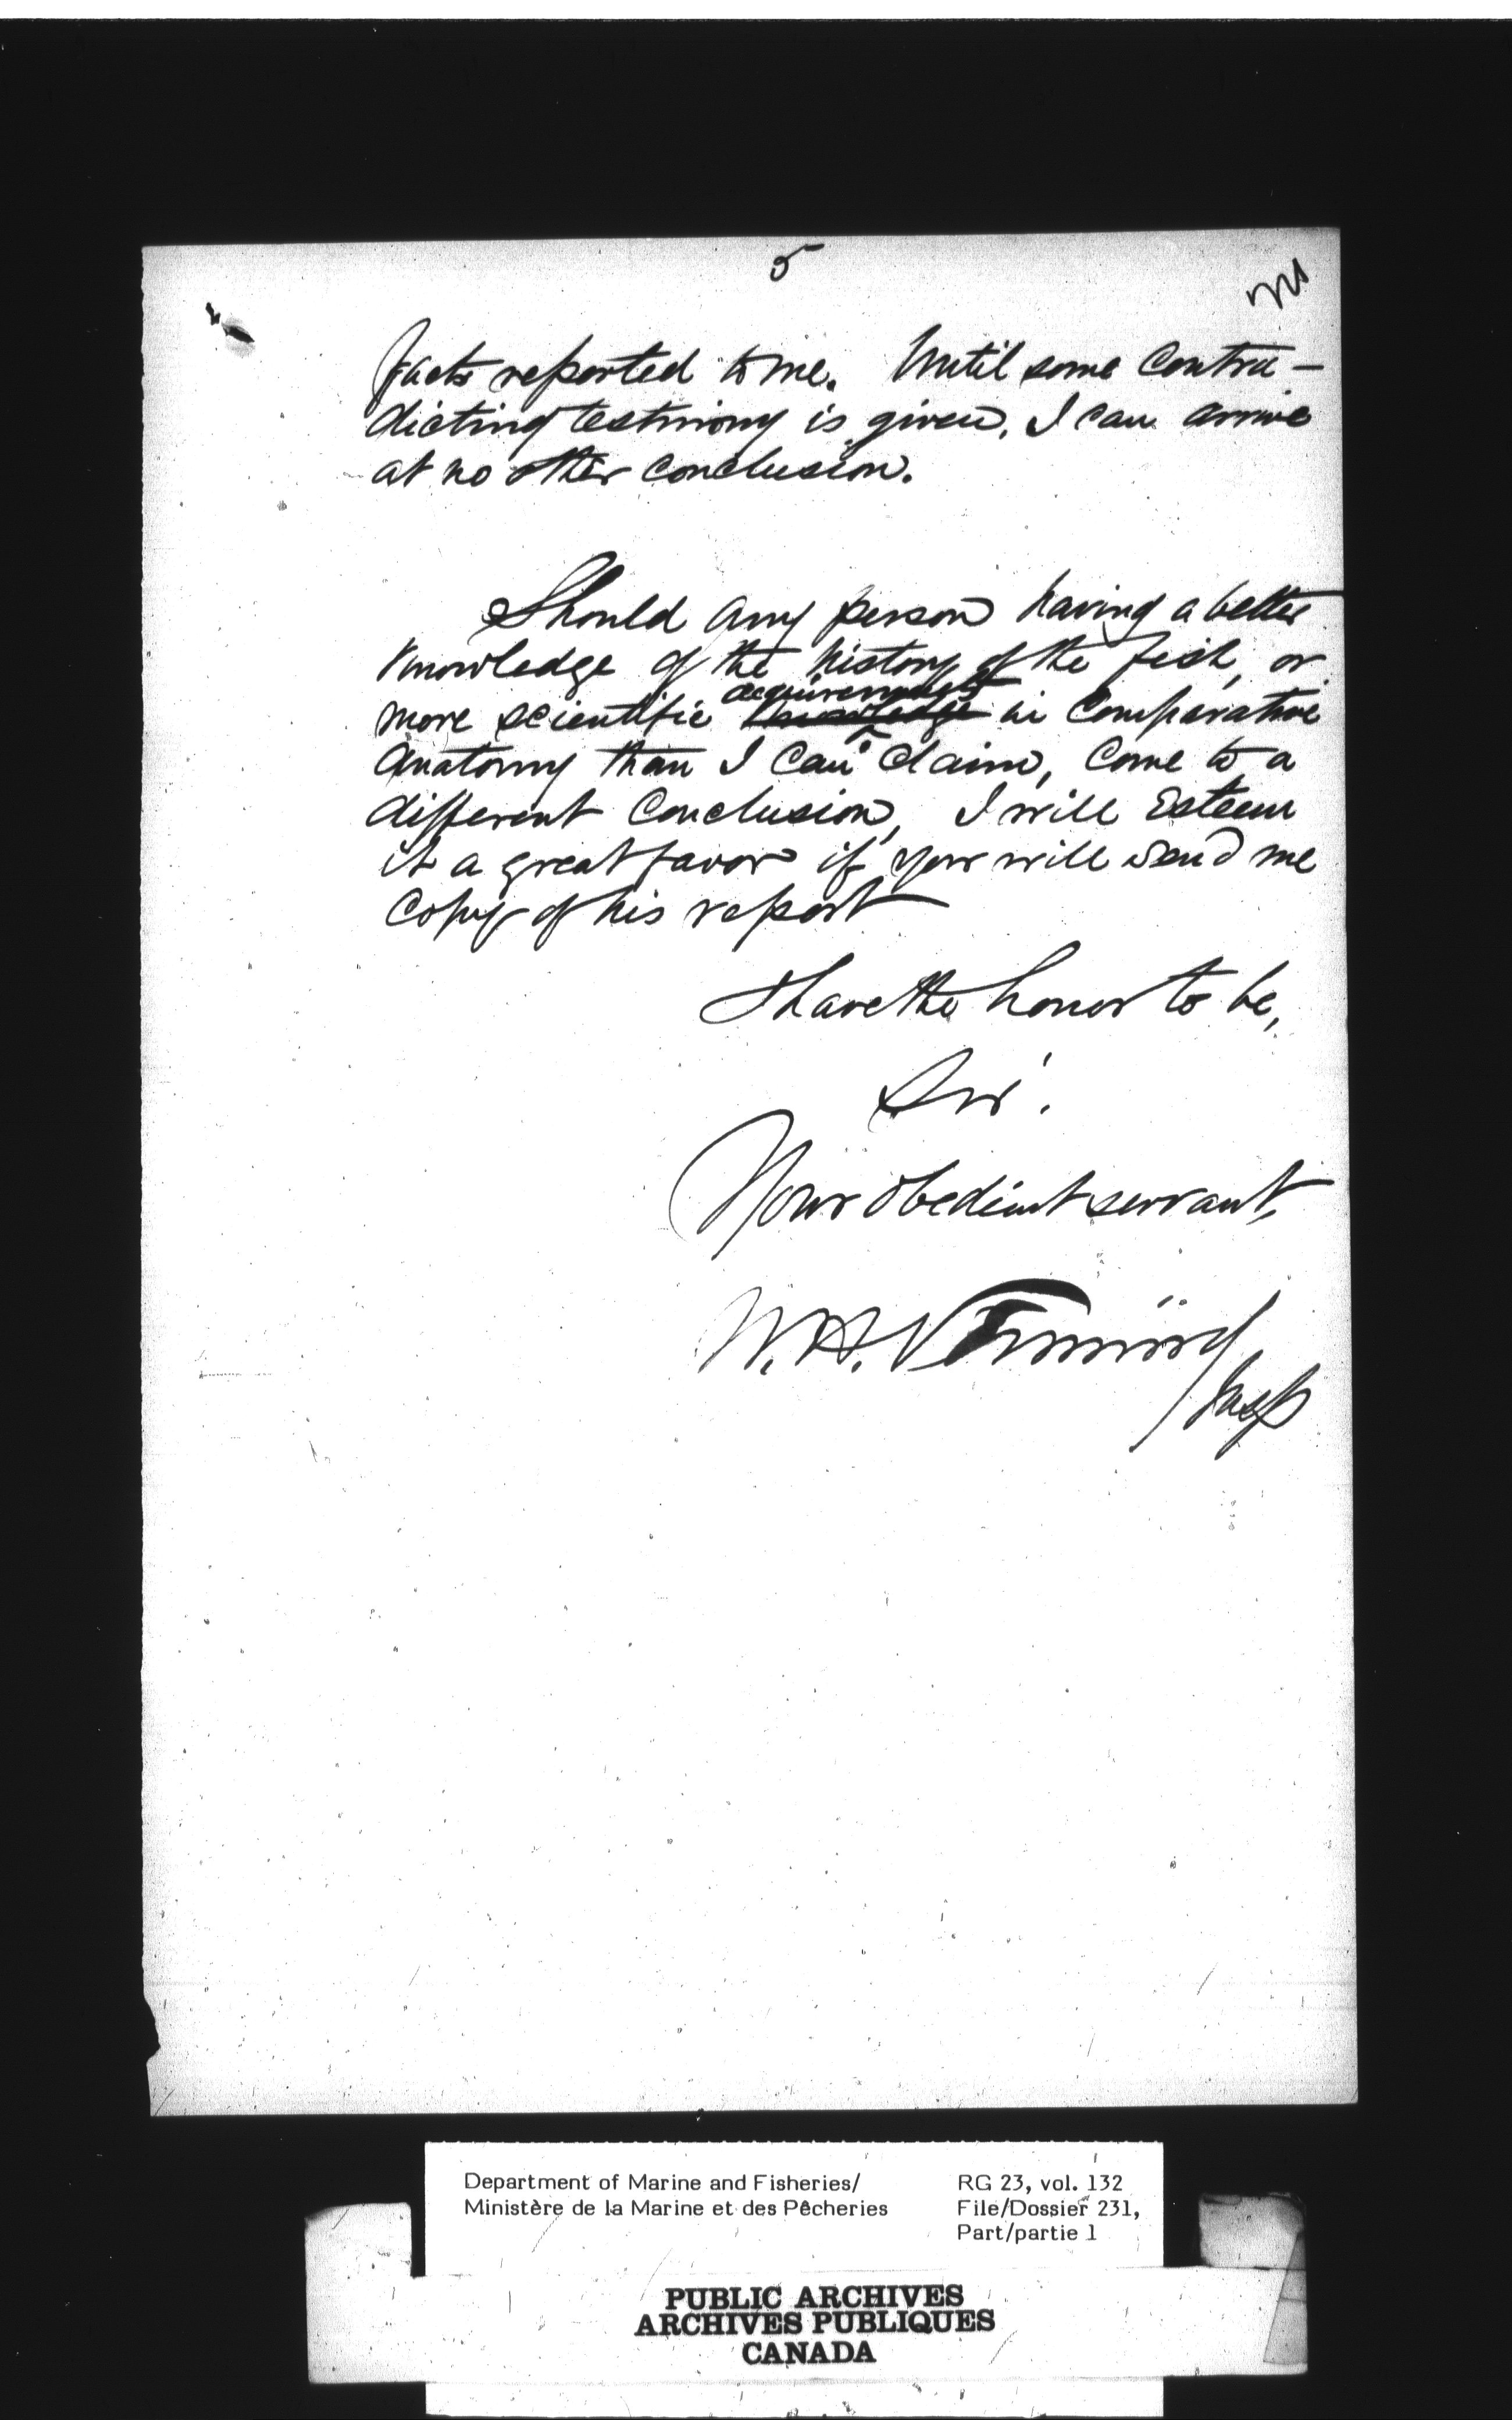 5
facts reported to me. Until some contra-
dicting testimony is given, I can arrive
at no other conclusion.
Should any person having a better
knowledge of the history of the fish, or
acquirements
more scientific knowledge in Comparative
Anatomy than I can claim, come to a
different Conclusion, I will Esteem
it a great favor if you will send me
Copy of his report
I have the honor to be,
Sir.
Your obedient servant,
W. H. Venning
Insp
Department of Marine and Fisheries/
Ministère de la Marine et des Pêcheries
RG 23, vol. 132
File/Dossier 231,
Part/partie 1
PUBLIC ARCHIVES
ARCHIVES PUBLIQUES
CANADA